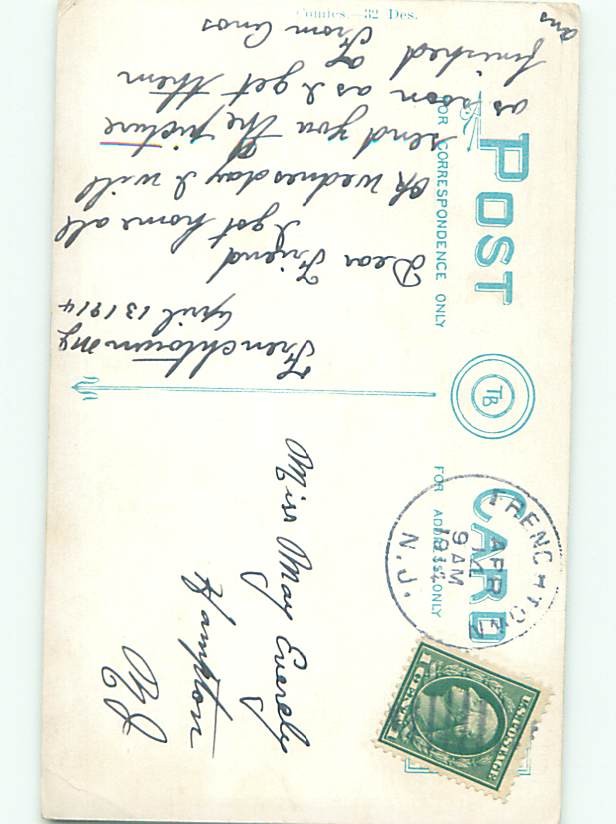 Comics—32 Des.
POST CARD
FOR CORRESPONDENCE ONLY
TB
FOR ADDRESS ONLY
FRENCHTOWN
APR
14
9 AM
1914
N.J.
U.S. POSTAGE
Frenchtown NJ
April 13 1914
Dear Friend
I got home all
Ok wednesday I will
send you the picture
as soon as I get them
finished
From Amos
ans
Miss May Everely
Hampton
NJ